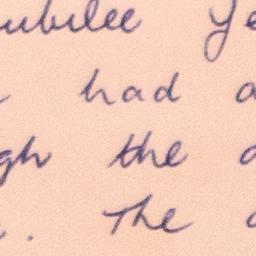 ubilee Ye
had a
gh the
. The